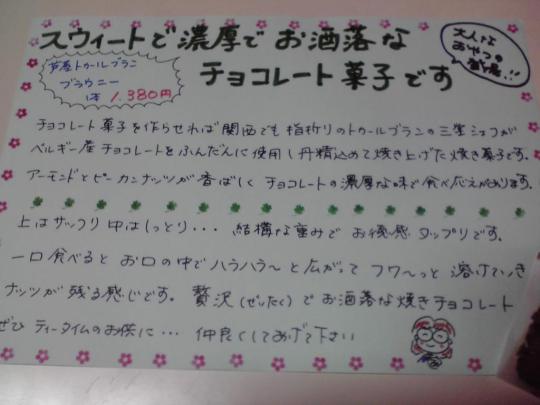 スウィートで濃厚で お洒落な
チョコレート菓子です
大人な
おやつの
芦屋トゥールブラン
ブラウニー
1本 1.380円
チョコレート菓子を作らせれば関西でも指折りのトゥールブランの三箇シェフが
ベルギー産チョコレートをふんだんに使用し丹精込めて焼き上げた焼き菓子です。
アーモンドとピーカンナッツが香ばしく チョコレートの濃厚な味で食べ応えがあります。
上はサックリ 中はしっとり... 結構な重みで お得感 タップリです。
一口食べると お口の中でハラハラ〜と広がって フワ〜っと 溶けていき
ナッツが残る感じです。贅沢(ぜいたく)でお洒落な焼きチョコレート
ぜひ ティータイムのお供に... 仲良くしてあげて下さい